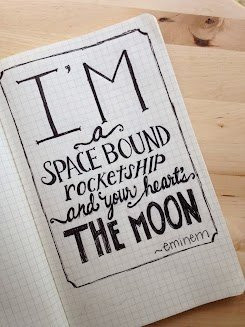 I'M
a
SPACE BOUND
rocketship
and your heart's
THE MOON
~eminem